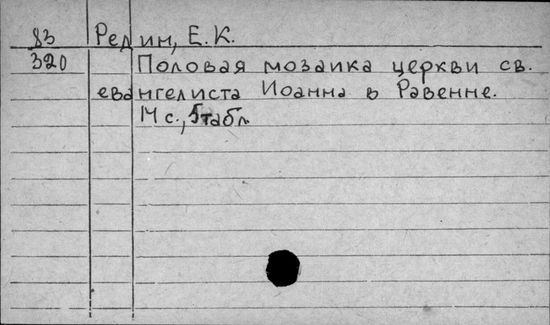 83 Редин, Е.К.
320 Половая мозаика церкви св.
евангелиста Иоанна в Равенне.
14 с., 5 табл.